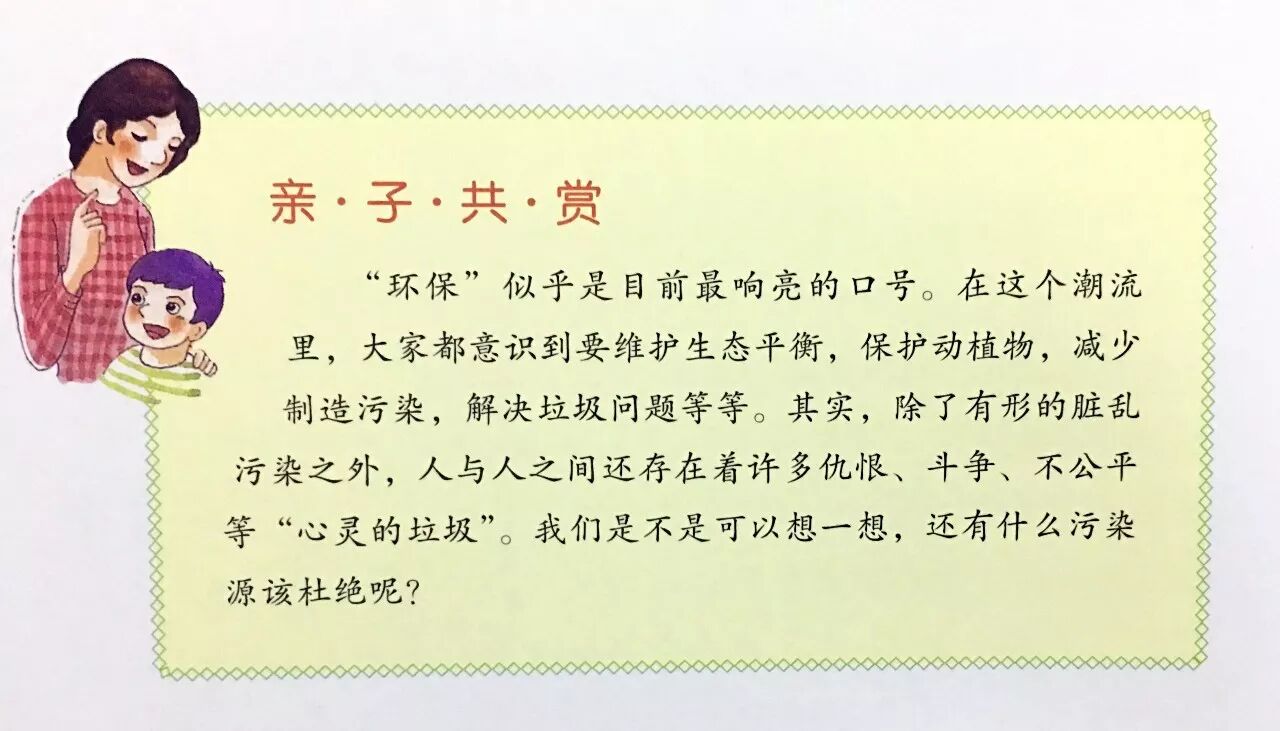 亲·子·共·赏
“环保”似乎是目前最响亮的口号。在这个潮流
里，大家都意识到要维护生态平衡，保护动植物，减少
制造污染，解决垃圾问题等等。其实，除了有形的脏乱
污染之外，人与人之间还存在着许多仇恨、斗争、不公平
等“心灵的垃圾”。我们是不是可以想一想，还有什么污染
源该杜绝呢？